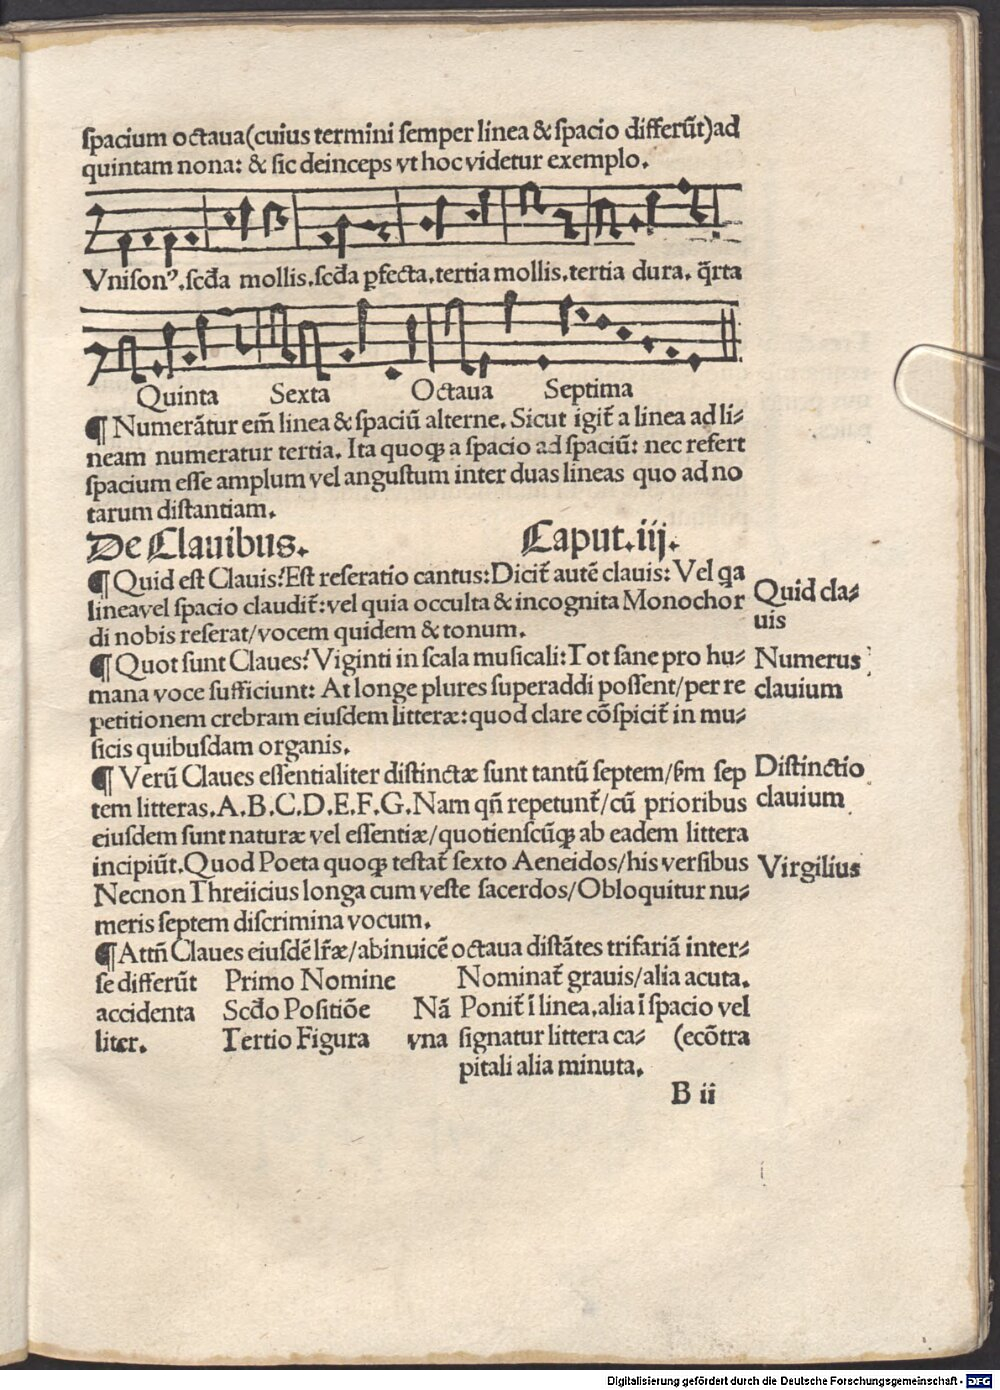 spacium octaua(cuius termini semper linea & spacio differūt)ad
quintam nona: & sic deinceps vt hoc videtur exemplo.
Vnisonꝰ.scďa mollis.scďa ꝑfecta.tertia mollis.tertia dura. q̄rta
Quinta Sexta Octaua Septima
¶ Numerātur em̄ linea & spaciū alterne. Sicut igit̄ a linea ad li⸗
neam numeratur tertia. Ita quoqꝫ a spacio ad spaciū: nec refert
spacium esse amplum vel angustum inter duas lineas quo ad no
tarum distantiam.
De Clauibus. Caput.iij.
¶ Quid est Clauis? Est reseratio cantus: Dicit̄ autē clauis: Vel qa
lineavel spacio claudit̄: vel quia occulta & incognita Monochor
di nobis reserat/vocem quidem & tonum.
Quid cla⸗
uis
¶ Quot sunt Claues? Viginti in scala musicali: Tot sane pro hu⸗
mana voce sufficiunt: At longe plures superaddi possent/per re
petitionem crebram eiusdem litteræ: quod clare cōspicit̄ in mu⸗
sicis quibusdam organis.
Numerus
clauium
¶ Verū Claues essentialiter distinctæ sunt tantū septem/ẜm sep
tem litteras. A.B.C.D.E.F.G. Nam qn̄ repetunt̄/cū prioribus
eiusdem sunt naturæ vel essentiæ/quotienscūqꝫ ab eadem littera
incipiūt. Quod Poeta quoqꝫ testat̄ sexto Aeneidos/his versibus
Necnon Threiicius longa cum veste sacerdos/Obloquitur nu⸗
meris septem discrimina vocum.
Distinctio
clauium
Virgilius
¶ Attn̄ Claues eiusdē lr̄æ/abinuicē octaua distātes trifariā inter⸗
se differūt Primo Nomine Nominat̄ grauis/alia acuta.
accidenta Scďo Positiōe Nā Ponit̄ ī linea.alia ī spacio vel
liter. Tertio Figura vna signatur littera ca⸗ (ecōtra
pitali alia minuta.
B ii
Digitalisierung gefördert durch die Deutsche Forschungsgemeinschaft - DFG